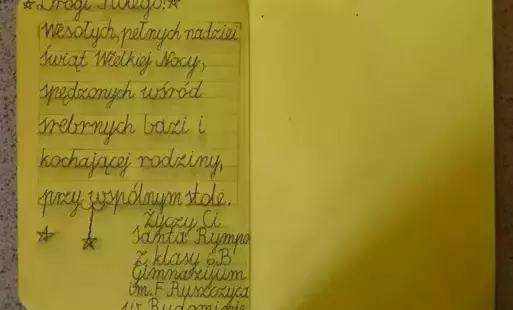 Drogi
Wesołych, pełnych nadziei
świąt Wielkiej Nocy,
spędzonych wśród
srebrnych bazi i
kochającej rodziny,
przy wspólnym stole.
Życzy Ci
Santa Rympo
z klasy 6B
Gimnazijum
im. F Ruszczyca
w Rudominie